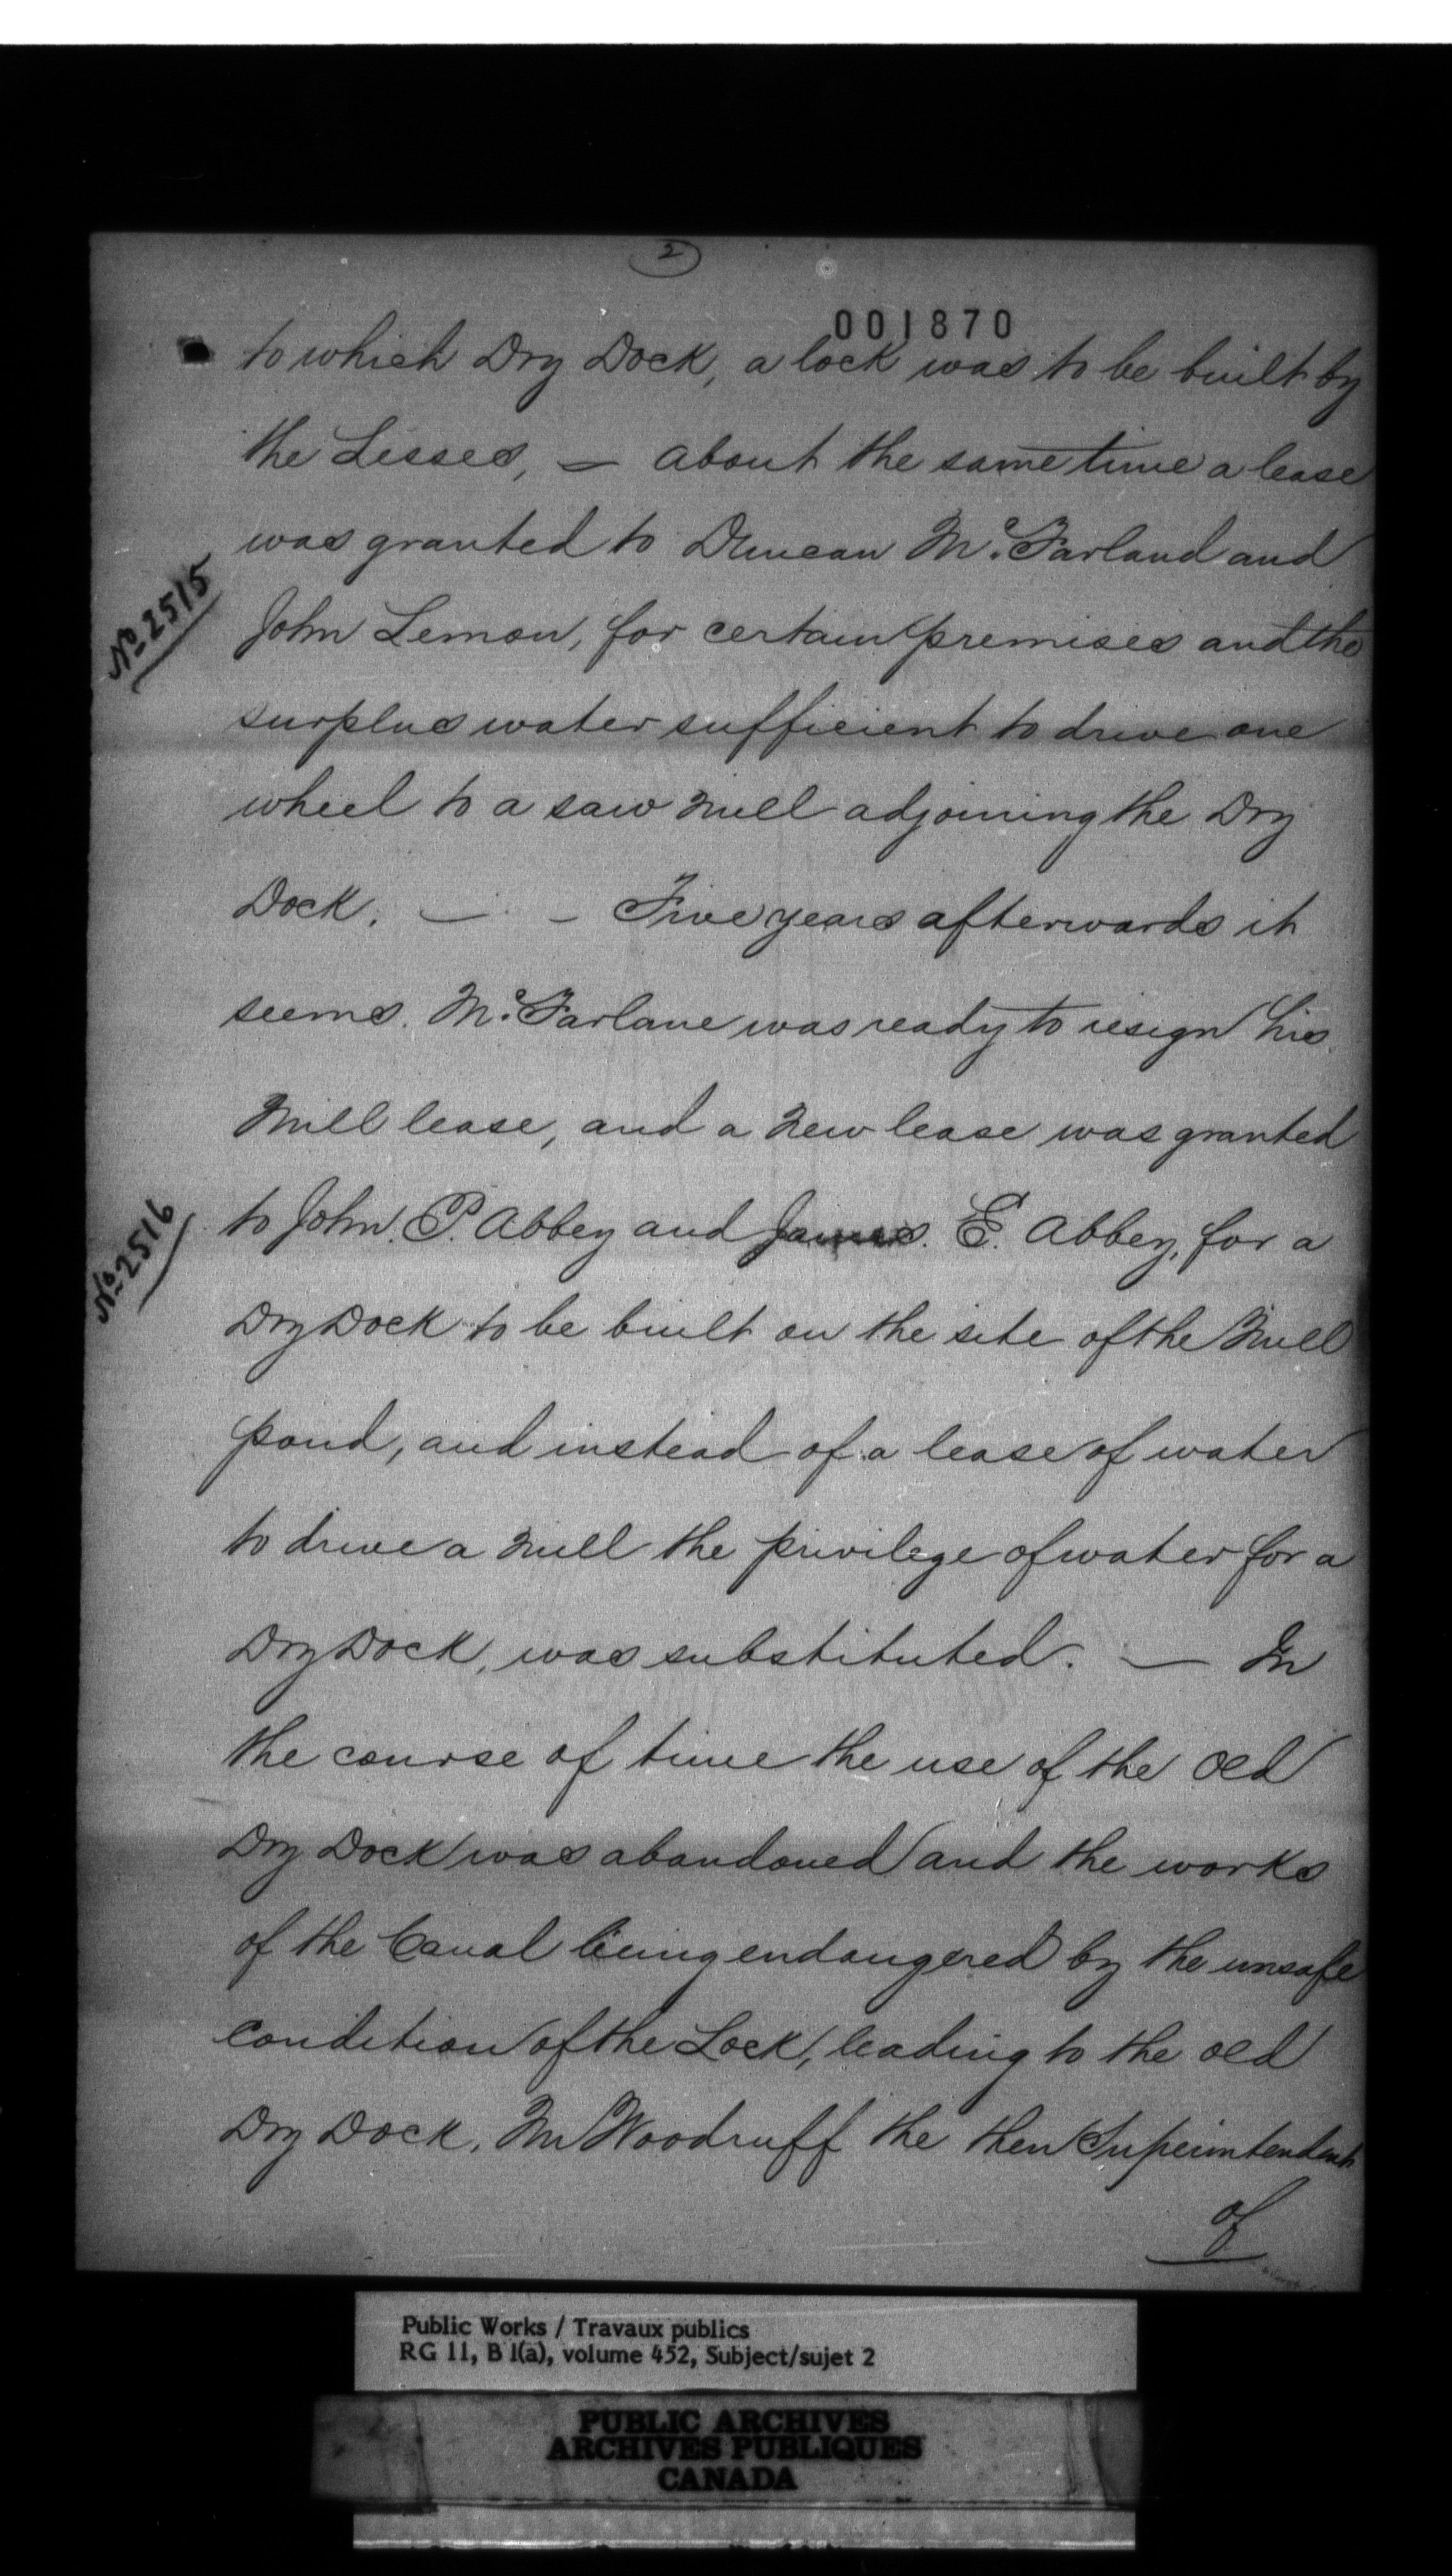 2
001870
to which Dry Dock, a lock was to be built by
the Lessees, — about the same time a lease
was granted to Duncan McFarland and
No 2515
John Lemon, for certain premises and the
surplus water sufficient to drive one
wheel to a saw Mill adjoining the Dry
Dock. — - Five years afterwards it
seems. McFarlane was ready to resign his
Mill lease, and a New lease was granted
No 2516
to John. P. Abbey and James. E. Abbey, for a
Dry Dock to be built on the site of the Mill
pond, and instead of a lease of water
to drive a Mill the privilege of water for a
Dry Dock, was substituted. — In
the course of time the use of the old
Dry Dock was abandoned and the works
of the Canal being endangered by the unsafe
condition of the Lock, leading to the old
Dry Dock, Mr Woodruff the then Superintendent
of
Public Works / Travaux publics
RG 11, B 1(a), volume 452, Subject/sujet 2
PUBLIC ARCHIVES
ARCHIVES PUBLIQUES
CANADA